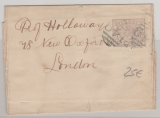 Reg Holloway
75 New Oxford
London
25€